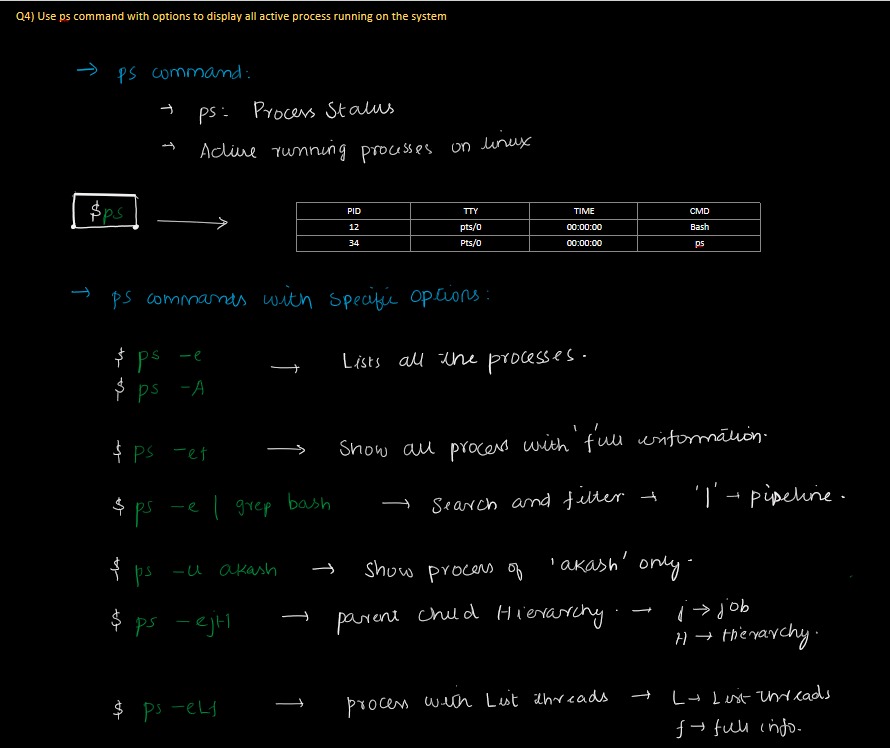 Q4) Use ps command with options to display all active process running on the system
→ ps command:
→ ps: Process Status
→ Active running processes on linux
$ps →
PID TTY TIME CMD
12 pts/0 00:00:00 Bash
34 Pts/0 00:00:00 ps
→ ps commands with specific options:
$ ps -e → Lists all the processes.
$ ps -A
$ ps -ef → Show all process with 'full information.
$ ps -e | grep bash → Search and filter → '|' → pipeline.
$ ps -u akash → Show process of 'akash' only.
$ ps -ejH → parent child Hierarchy. → j → job
H → Hierarchy.
$ ps -eLf → process with List threads → L → List threads
f → full info.